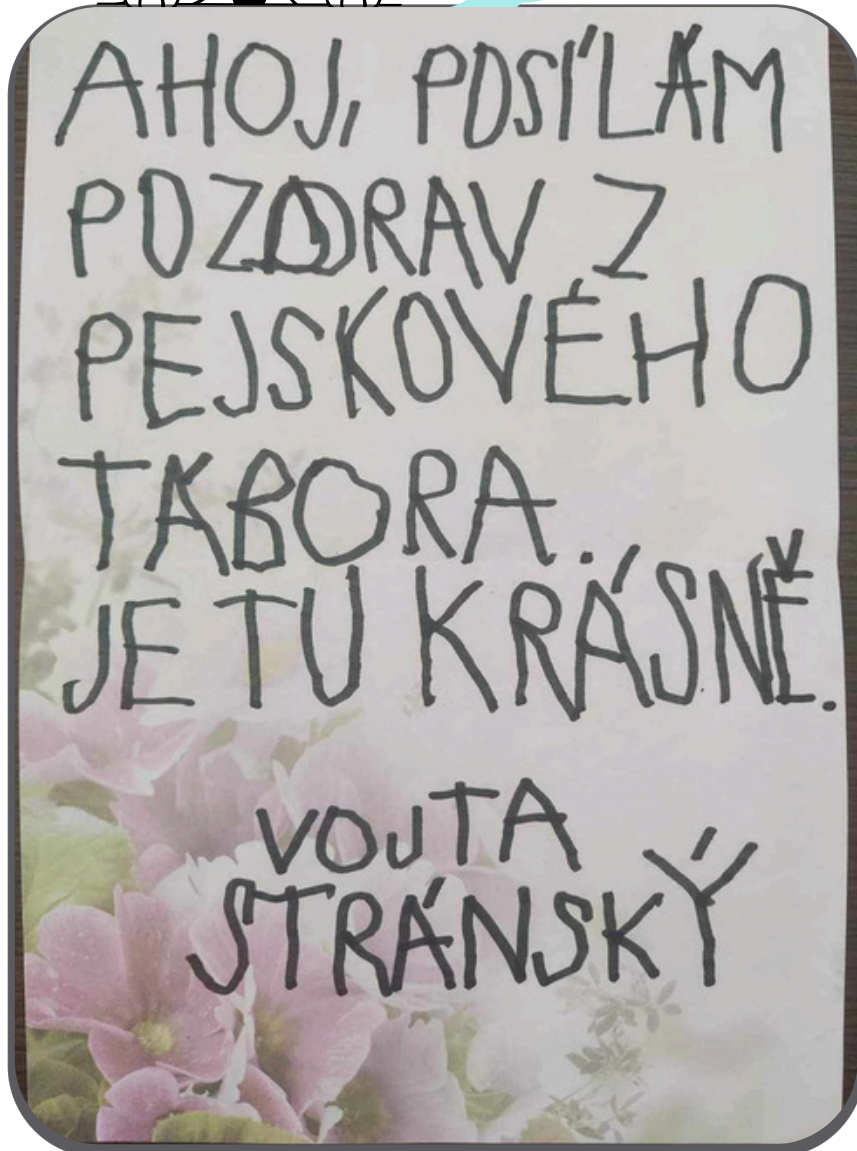 AHOJ, POSÍLÁM
POZDRAV Z
PEJSKOVÉHO
TÁBORA.
JE TU KRÁSNĚ.
VOJTA
STRÁNSKÝ